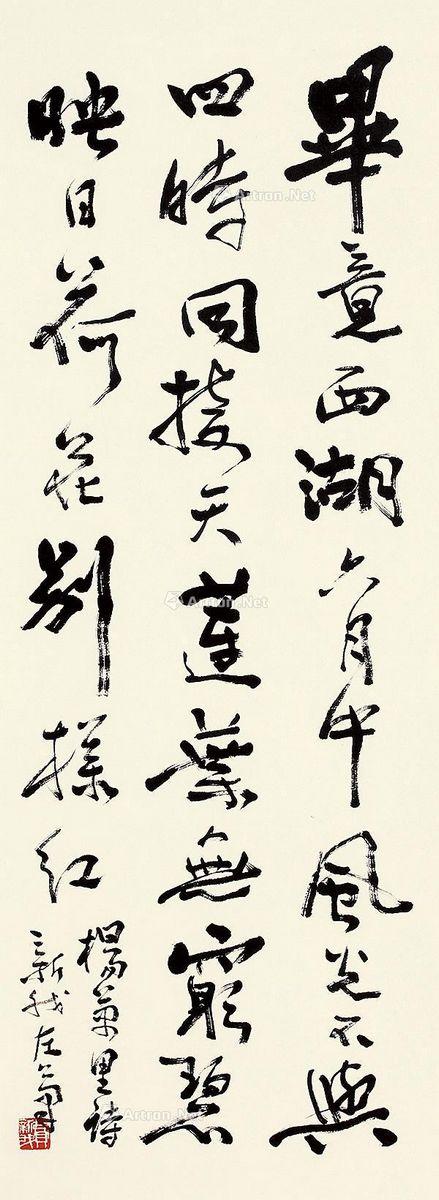 畢竟西湖六月中風光不與
四時同接天蓮葉無窮碧
映日荷花別樣紅
楊萬里詩
新我左筆
Artron.Net
Artron.Net
Artron.Net